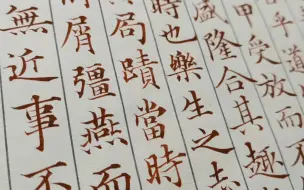 乎道
甲受放而不
盛隆合其趣
時也樂生之志
局蹟當時
屑彊燕而
無近事不